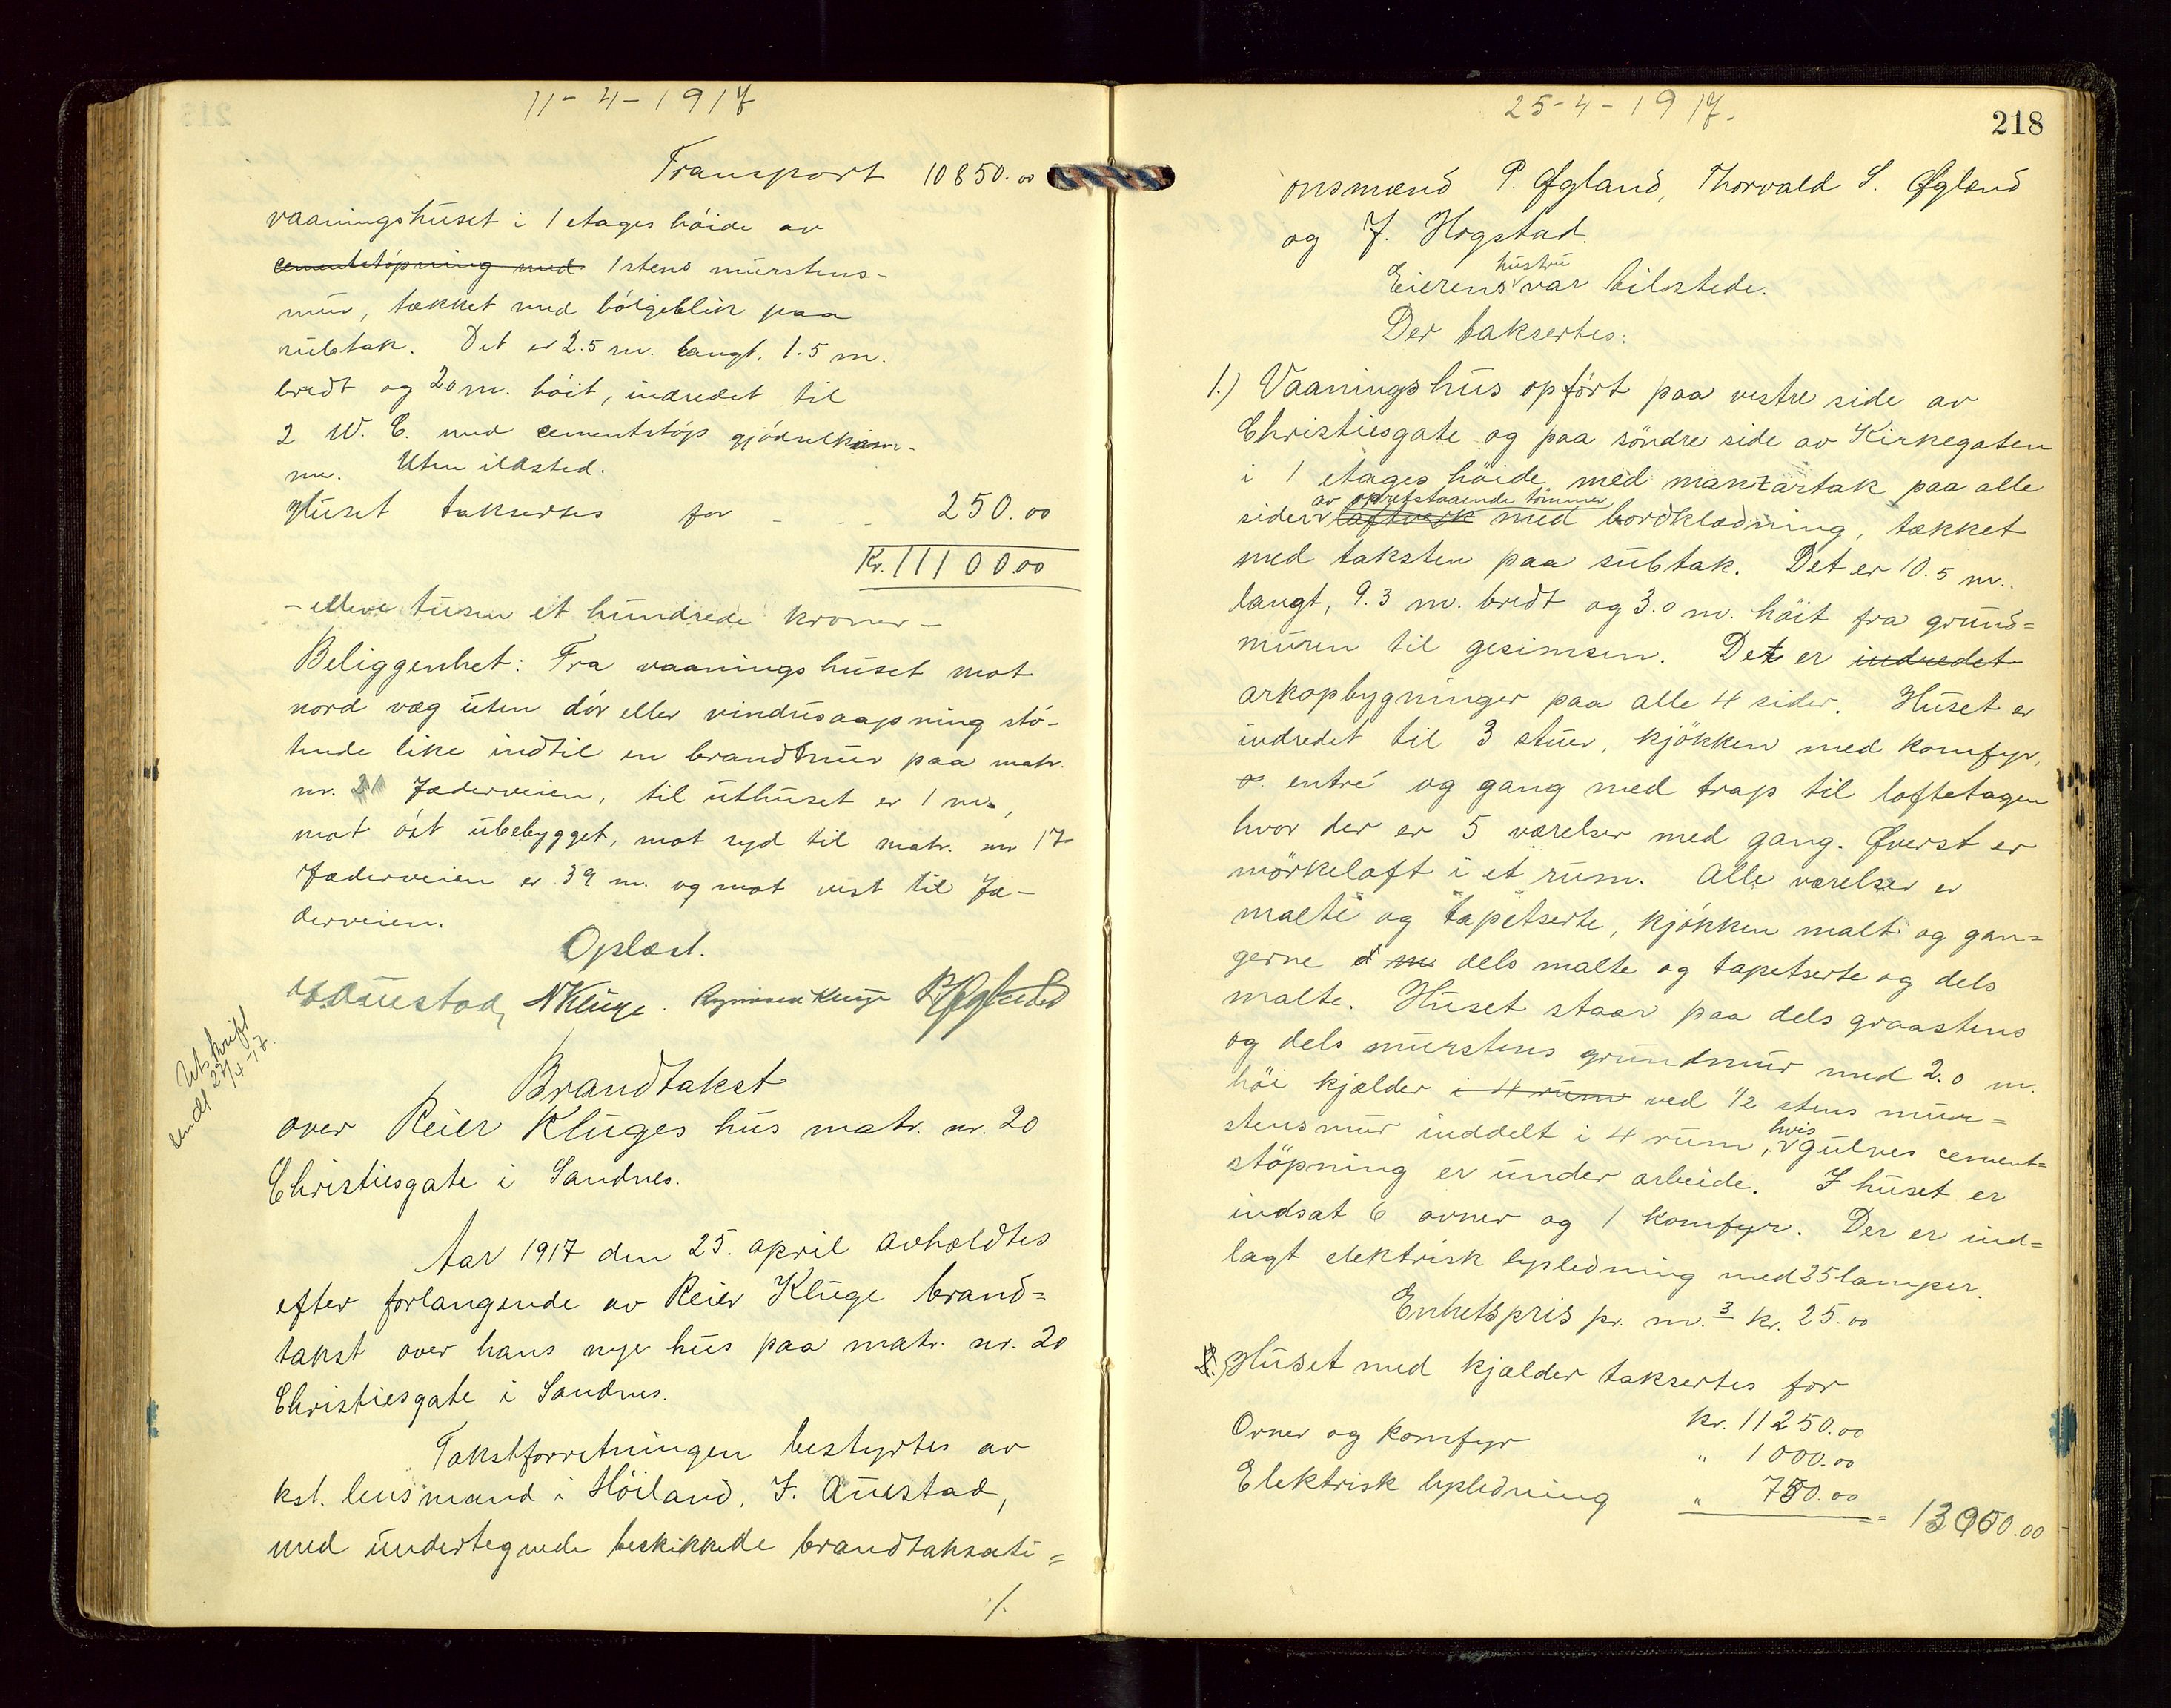 11-4-1917
Transport 10850.00
vaaningshuset i 1 etages höide av
cementstöpning med 1 stens murstens-
mur, tækket med bölgeblik paa
subtak. Det er 2.5 m. langt, 1.5 m.
bredt og 20 m. höit, indredet til
2 W. C. med cementstöps gjödselkum-
me. Uten ildsted.
Huset taksertes for - - - 250.00
Kr. 11100.00
- elleve tusen et hundrede kroner -
Beliggenhet: Fra vaaningshuset mot
nord væg uten dör eller vindusaapning stö-
tende like indtil en brandmur paa matr.
nr. 21 Jæderveien, til uthuset er 1 m.,
mot öst ubebygget, mot syd til matr. nr 17
Jæderveien er 39 m. og mot vest til Jæ-
derveien.
Oplæst.
Auestad, N Kluge. Rasmus Kluge P. Øgland
Utskrift
sendt 27/4-17.
Brandtakst
over Reier Kluges hus matr. nr. 20
Christiesgate i Sandnes.
Aar 1917 den 25. april avholdtes
efter forlangende av Reier Kluge brand=
takst over hans nye hus paa matr. nr. 20
Christiesgate i Sandnes.
Takstforretningen bestyrtes av
kst. lensmand i Höiland, J. Auestad,
med undertegnede beskikkede brandtaksati=
./.
25-4-1917.
218
onsmænd P. Øgland, Thorvald S. Øgland
og J. Hogstad.
hustru
Eierens var tilstede.
Der taksertes:
1.) Vaaningshus opfört paa vestre side av
Christiesgate og paa söndre side av Kirkegaten
i 1 etages höide med manzartak paa alle
av opretstaaende tömmer
sider laftverk med bordklædning, tækket
med taksten paa subtak. Det er 10.5 m.
langt, 9.3 m. bredt og 3.0 m. höit fra grund=
muren til gesimsen. Det er indredet
arkopbygninger paa alle 4 sider. Huset er
indredet til 3 stuer, kjökken med komfyr,
entré og gang med trap til loftetagen
hvor der er 5 værelser med gang. Øverst er
mörkeloft i et rum. Alle værelser er
malte og tapetserte, kjökken malt og gan=
gerne dels malte og tapetserte og dels
malte. Huset staar paa dels graastens
og dels murstens grundmur med 2.0 m.
höi kjælder i 4 rum ved 1/2 stens mur=
hvis
stensmur inddelt i 4 rum, gulves cement=
stöpning er under arbeide. I huset er
indsat 6 ovner og 1 komfyr. Der er ind=
lagt elektrisk lysledning med 25 lamper.
Enhetspris pr. m.3 kr. 25.00
Huset med kjælder taksertes for
kr. 11250.00
Ovner og komfyr " 1000.00
Elektrisk lysledning " 750.00 = 13000.00